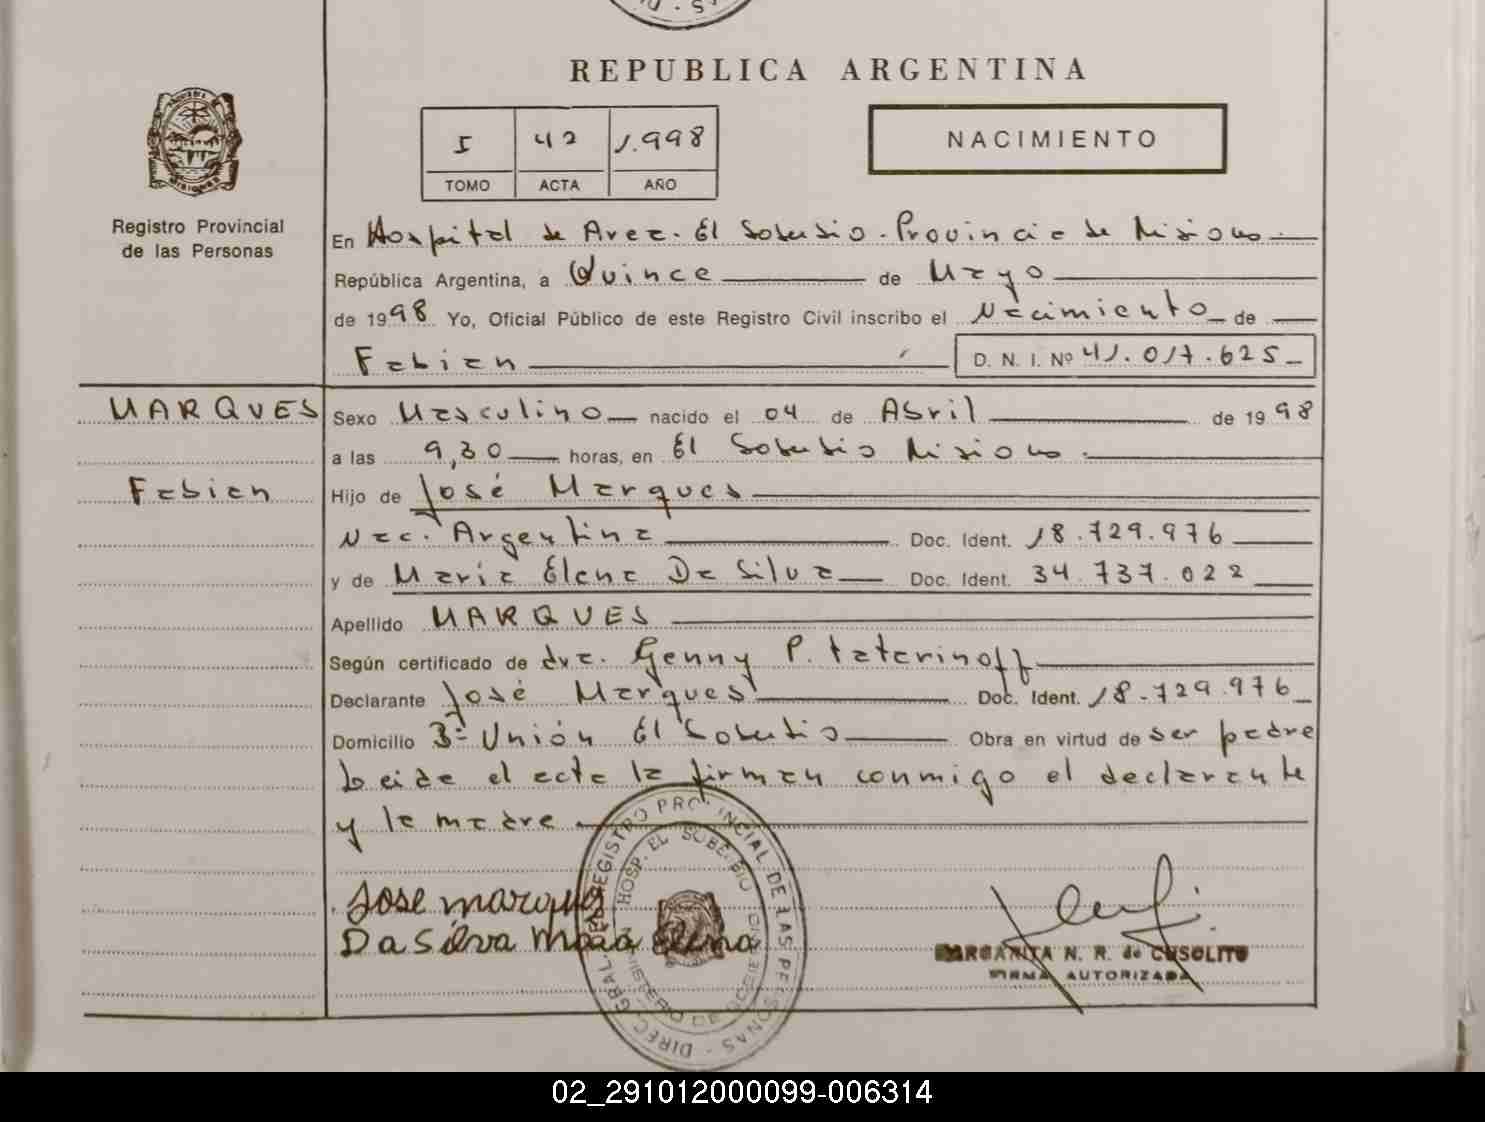 REPUBLICA ARGENTINA
I 42 1.998
TOMO ACTA AÑO
NACIMIENTO
Registro Provincial
de las Personas
En Hospital de Area. El Soberbio. Provincia de Misiones
República Argentina, a Quince de Mayo
de 1998 Yo, Oficial Público de este Registro Civil inscribo el Nacimiento de
Fabian D. N. I. Nº 41.017.625
MARQUES
Fabian
Sexo Masculino nacido el 04 de Abril de 1998
a las 9,30 horas, en El Soberbio Misiones.
Hijo de José Marques
Nac. Argentina Doc. Ident. 18.729.976
y de Maria Elena Da Silva Doc. Ident. 34.737.022
Apellido MARQUES
Según certificado de dra. Genny P. Tatarinoff
Declarante José Marques Doc. Ident. 18.729.976
Domicilio 3- Unión El Soberbio Obra en virtud de ser padre
Leida el acta la firman conmigo el declarante
y la madre
Jose marques
Da Silva Maria Elena
DIREC. GRAL. REGISTRO PROVINCIAL DE LAS PERSONAS
HOSP. EL SOBERBIO
MINISTERIO DE GOBIERNO
MARGARITA N. R. de CUSOLITO
FIRMA AUTORIZADA
02_291012000099-006314